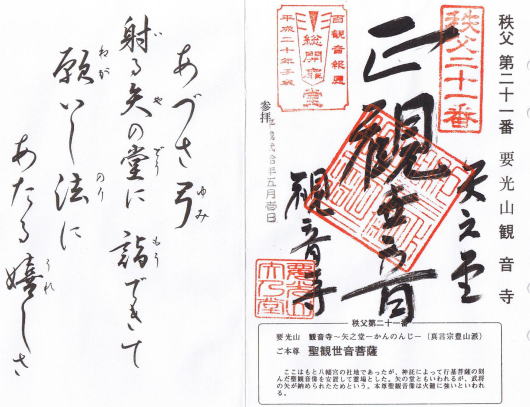 秩父 第二十一番 要光山観音寺
秩父二十一番
矢之堂
正観世音
観音寺
百観音報恩
総開帳
平成二十年子歳
参拝 平成弐拾年五月壱日
要光山
矢乃堂
秩父第二十一番
要光山 観音寺～矢之堂－かんのんじ－(真言宗豊山派)
ご本尊 聖観世音菩薩
ここはもと八幡宮の社地であったが、神託によって行基菩薩の刻
んだ聖観音像を安置して霊場とした。矢の堂ともいわれるが、武将
の矢が納められたためという。本尊聖観世音像は火難に強いといわ
れる。
あづさ弓
ゆみ
射る矢の堂に 詣できて
い や どう もう
願いし法に
ねが のり
あたる嬉しさ
うれ